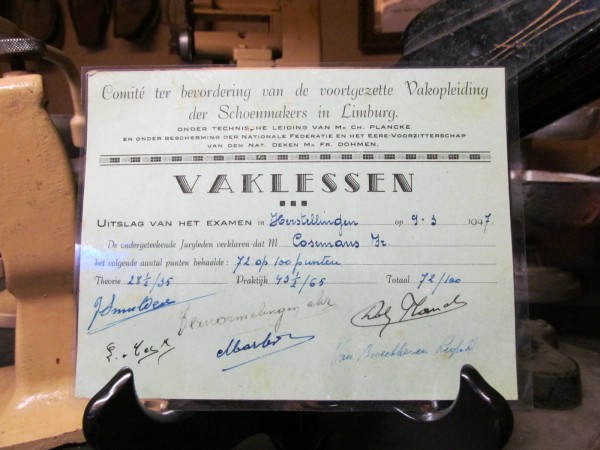 Comité ter bevordering van de voortgezette Vakopleiding
der Schoenmakers in Limburg.
ONDER TECHNISCHE LEIDING VAN Mr CH. PLANCKE
EN ONDER BESCHERMING DER NATIONALE FEDERATIE EN HET EERE-VOORZITTERSCHAP
VAN DEN NAT. DEKEN Mr FR. DOHMEN.
VAKLESSEN
UITSLAG VAN HET EXAMEN in Herstellingen op 9-3 1947.
De ondergeteekende Juryleden verklaren dat M Cosemans Fr.
het volgende aantal punten behaalde : 72 op 100 punten
Theorie 28½/35 Praktijk 43½/65 Totaal 72/100